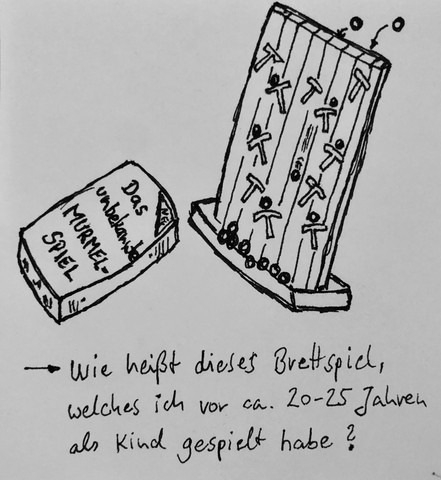 Das
unbekannte
MURMEL-
SPIEL
NEU
→ Wie heißt dieses Brettspiel,
welches ich vor ca. 20-25 Jahren
als Kind gespielt habe?